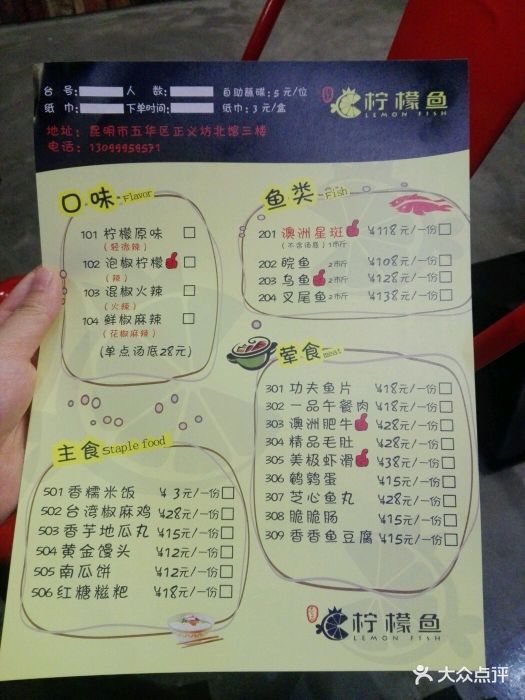 台 号: 人 数: 自助蘸碟:5元/位
纸 巾: 下单时间: 纸巾:3元/盒
柠檬鱼
LEMON FISH
地址: 昆明市五华区正义坊北馆三楼
电话: 13099959571
口味 Flavor
101 柠檬原味
(轻微辣)
102 泡椒柠檬
(辣)
103 混椒火辣
(火辣)
104 鲜椒麻辣
(花椒麻辣)
(单点汤底28元)
鱼类 Fish
201 澳洲星斑 ¥118元/一份
(不含汤底) 1市斤
202 皖鱼 2市斤 ¥108元/一份
203 乌鱼 2市斤 ¥128元/一份
204 叉尾鱼 2市斤 ¥138元/一份
荤食 meat
301 功夫鱼片 ¥18元/一份
302 一品午餐肉 ¥18元/一份
303 澳洲肥牛 ¥28元/一份
304 精品毛肚 ¥28元/一份
305 美极虾滑 ¥38元/一份
306 鹌鹑蛋 ¥15元/一份
307 芝心鱼丸 ¥28元/一份
308 脆脆肠 ¥15元/一份
309 香香鱼豆腐 ¥15元/一份
主食 Staple food
501 香糯米饭 ¥3元/一份
502 台湾椒麻鸡 ¥28元/一份
503 香芋地瓜丸 ¥15元/一份
504 黄金馒头 ¥12元/一份
505 南瓜饼 ¥12元/一份
506 红糖糍粑 ¥18元/一份
柠檬鱼
LEMON FISH
大众点评